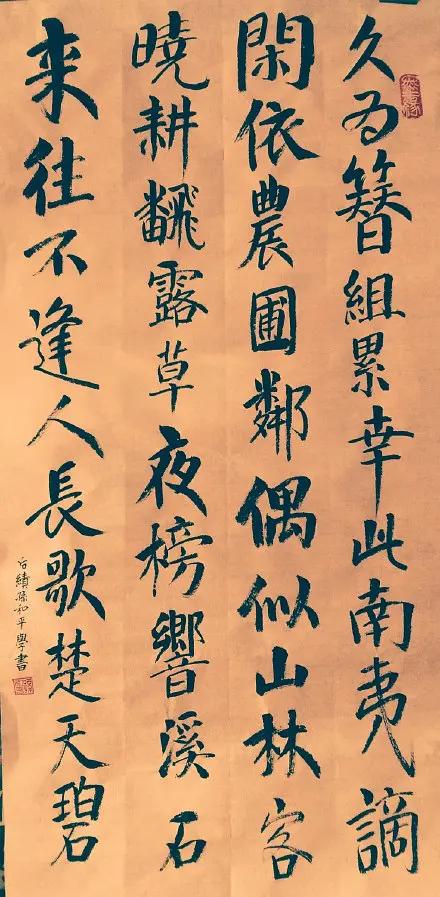 久为簪組累幸此南夷謫
閑依農圃鄰偶似山林客
曉耕飜露草夜榜響溪石
来往不逢人長歌楚天碧
績孫和平學書